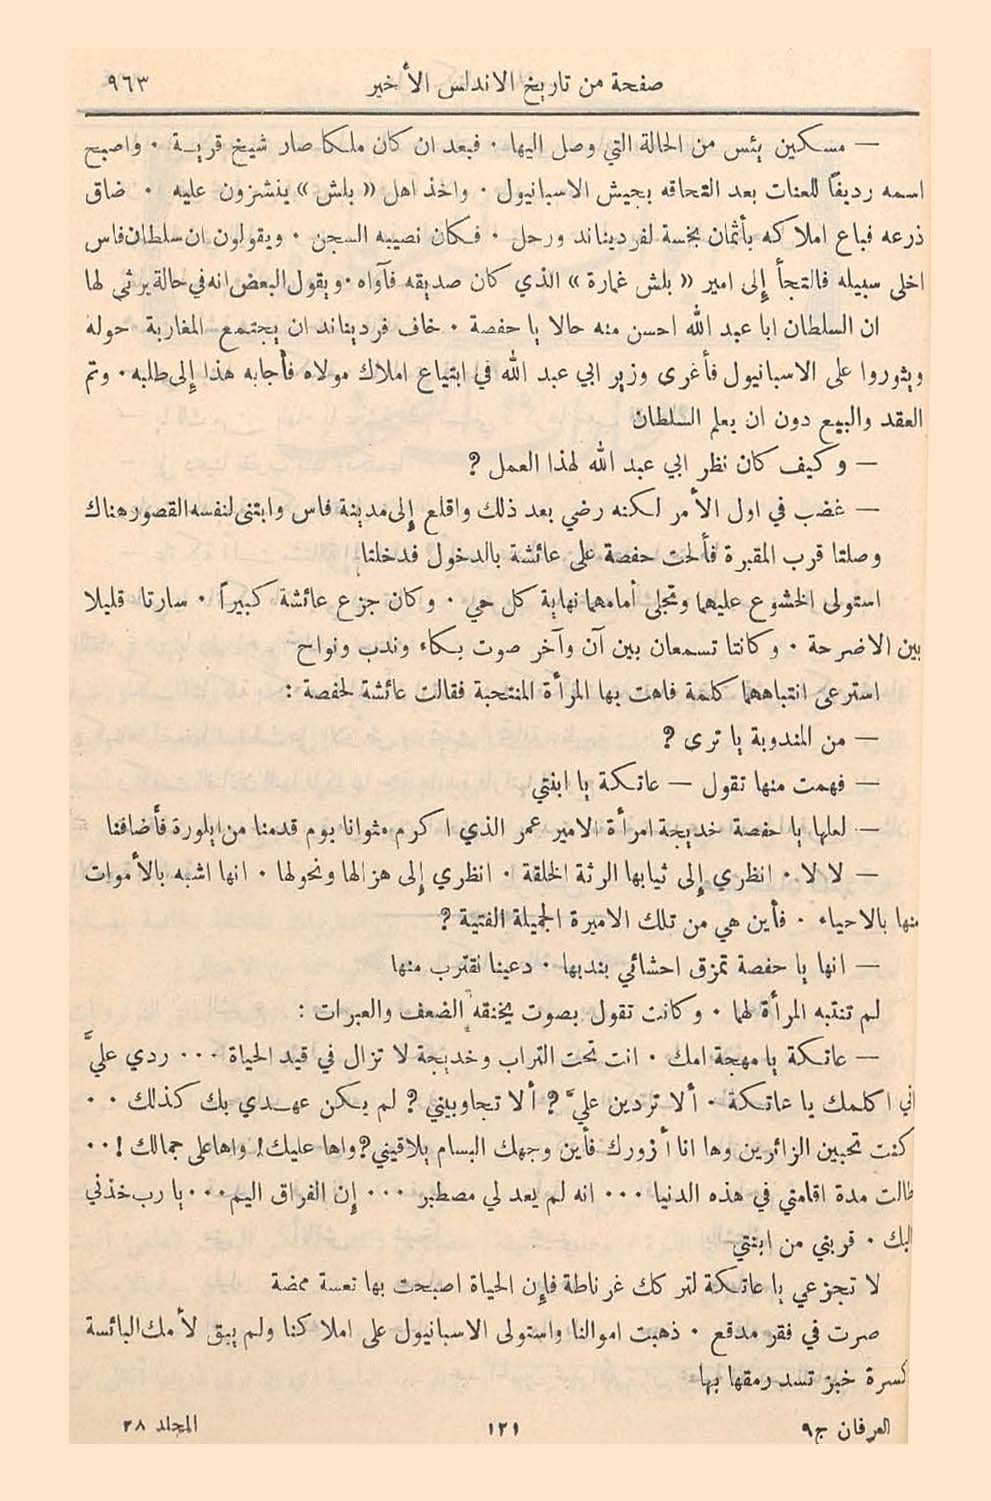 صفحة من تاريخ الاندلس الأخير ٩٦٣
— مسكين يئس من الحالة التي وصل اليها . فبعد ان كان ملكا صار شيخ قرية . واصبح
اسمه رديفاً للعنات بعد التحاقه بجيش الاسبانيول . واخذ اهل « بلش » ينشزون عليه . ضاق
ذرعه فباع املاكه بأثمان بخسة لفرديناند ورحل . فكان نصيبه السجن . ويقولون ان سلطان فاس
اخلى سبيله فالتجأ إلى امير « بلش غمارة » الذي كان صديقه فآواه . ويقول البعض انه في حالة يرثى لها
ان السلطان ابا عبد الله احسن منه حالا يا حفصة . خاف فرديناند ان يجتمع المغاربة حوله
ويثوروا على الاسبانيول فأغرى وزير ابي عبد الله في ابتياع املاك مولاه فأجابه هذا إلى طلبه . وتم
العقد والبيع دون ان يعلم السلطان
— وكيف كان نظر ابي عبد الله لهذا العمل ؟
— غضب في اول الأمر لكنه رضي بعد ذلك واقلع إلى مدينة فاس وابتنى لنفسه القصور هناك
وصلتا قرب المقبرة فألحت حفصة على عائشة بالدخول فدخلتا
استولى الخشوع عليهما وتجلى أمامهما نهاية كل حي . وكان جزع عائشة كبيراً . سارتا قليلا
بين الاضرحة . وكانتا تسمعان بين آن وآخر صوت بكاء وندب ونواح
استرعى انتباههما كلمة فاهت بها المرأة المنتحبة فقالت عائشة لحفصة :
— من المندوبة يا ترى ؟
— فهمت منها تقول — عاتكة يا ابنتي
— لعلها يا حفصة خديجة امرأة الامير عمر الذي اكرم مثوانا يوم قدمنا من ايلورة فأضافنا
— لا لا . انظري إلى ثيابها الرثة الخلقة . انظري إلى هزالها ونحولها . انها اشبه بالأموات
منها بالاحياء . فأين هي من تلك الاميرة الجميلة الفتية ؟
— انها يا حفصة تمزق احشائي بندبها . دعينا نقترب منها
لم تنتبه المرأة لهما . وكانت تقول بصوت يخنقه الضعف والعبرات :
— عاتكة يا مهجة امك . انت تحت التراب وخديجة لا تزال في قيد الحياة ... ردي عليّ
اني اكلمك يا عاتكة . ألا تردين عليّ ؟ ألا تجاوبيني ؟ لم يكن عهدي بك كذلك . .
كنت تحبين الزائرين وها انا أزورك فأين وجهك البسام يلاقيني ؟ واها عليك ! واها على جمالك ! . .
طالت مدة اقامتي في هذه الدنيا ... انه لم يعد لي مصطبر ... إن الفراق اليم ... يا رب خذني
اليك . قربني من ابنتي
لا تجزعي يا عاتكة لتركك غرناطة فإن الحياة اصبحت بها تعسة ممضة
صرت في فقر مدقع . ذهبت اموالنا واستولى الاسبانيول على املاكنا ولم يبق لأمك البائسة
كسرة خبز تسد رمقها بها
العرفان ج٩ ١٢١ المجلد ٢٨